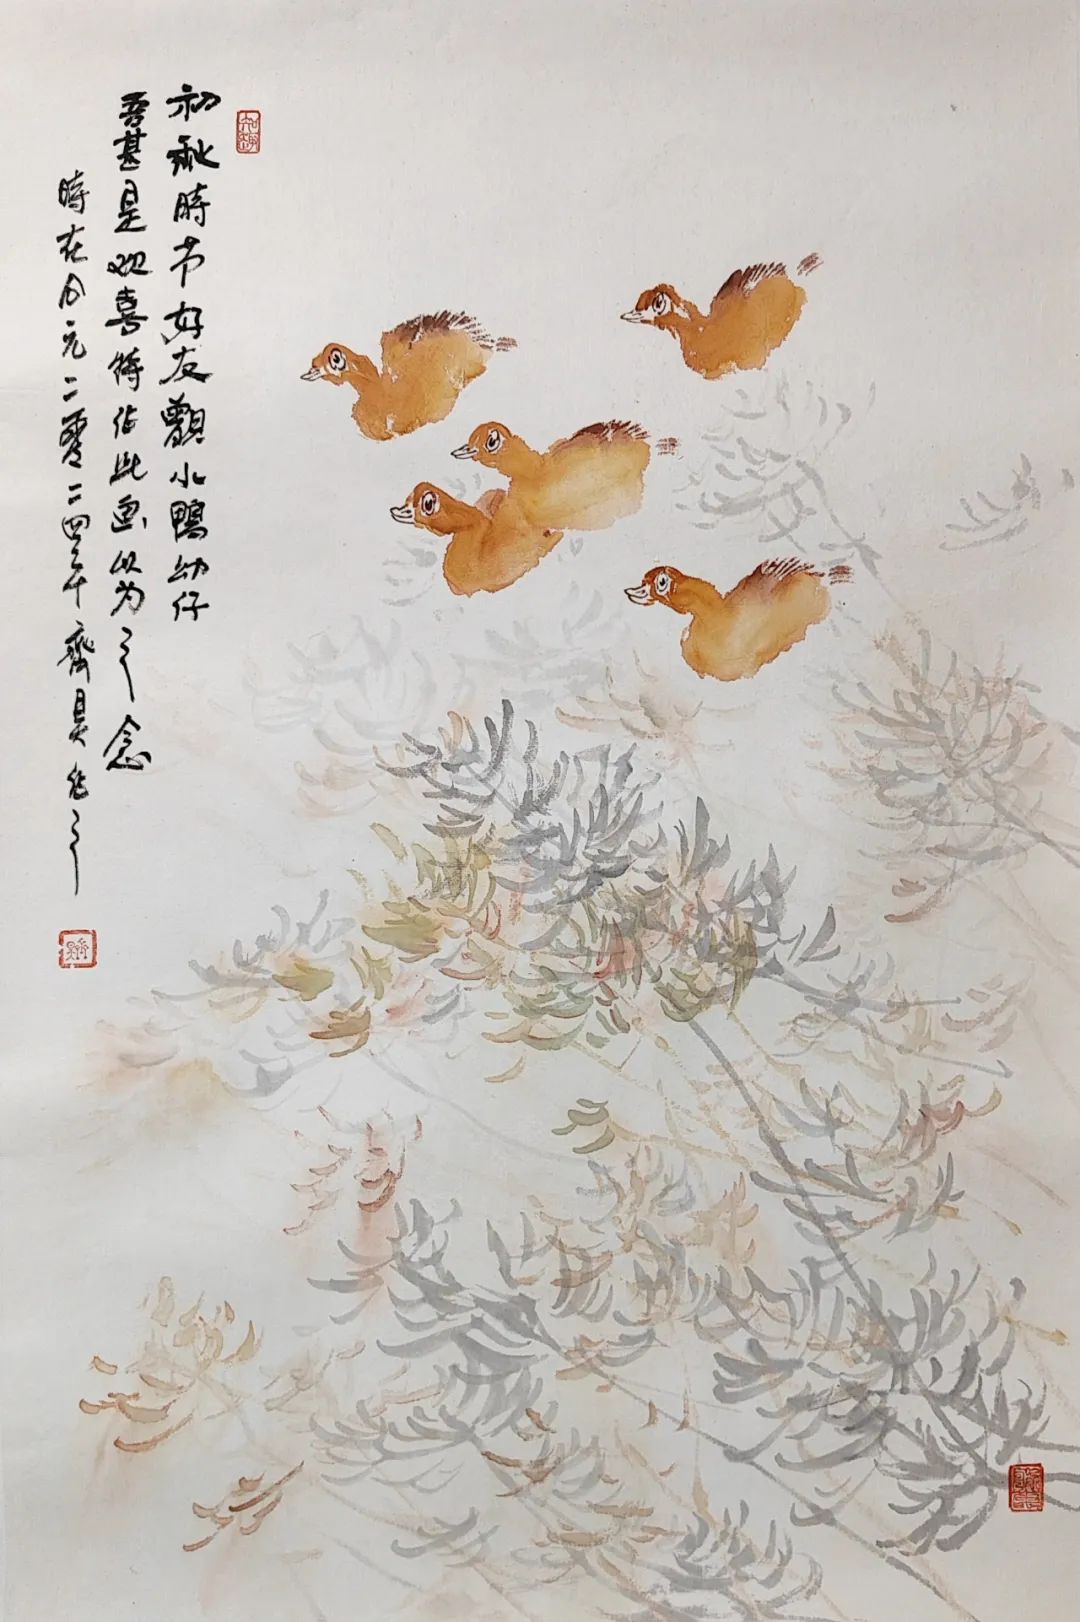 初秋時节好友觀小鴨幼仔
吾甚是欢喜特作此画以为之念
時在公元二零二四年齊昊作之